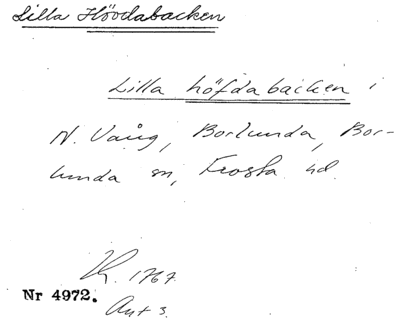 Lilla Hövdabacken
Lilla höfdabacken i
N. Vång, Borlunda, Bor-
lunda sn, Frosta hd.
Lk. 1767.
Nr 4972.
Akt 3.